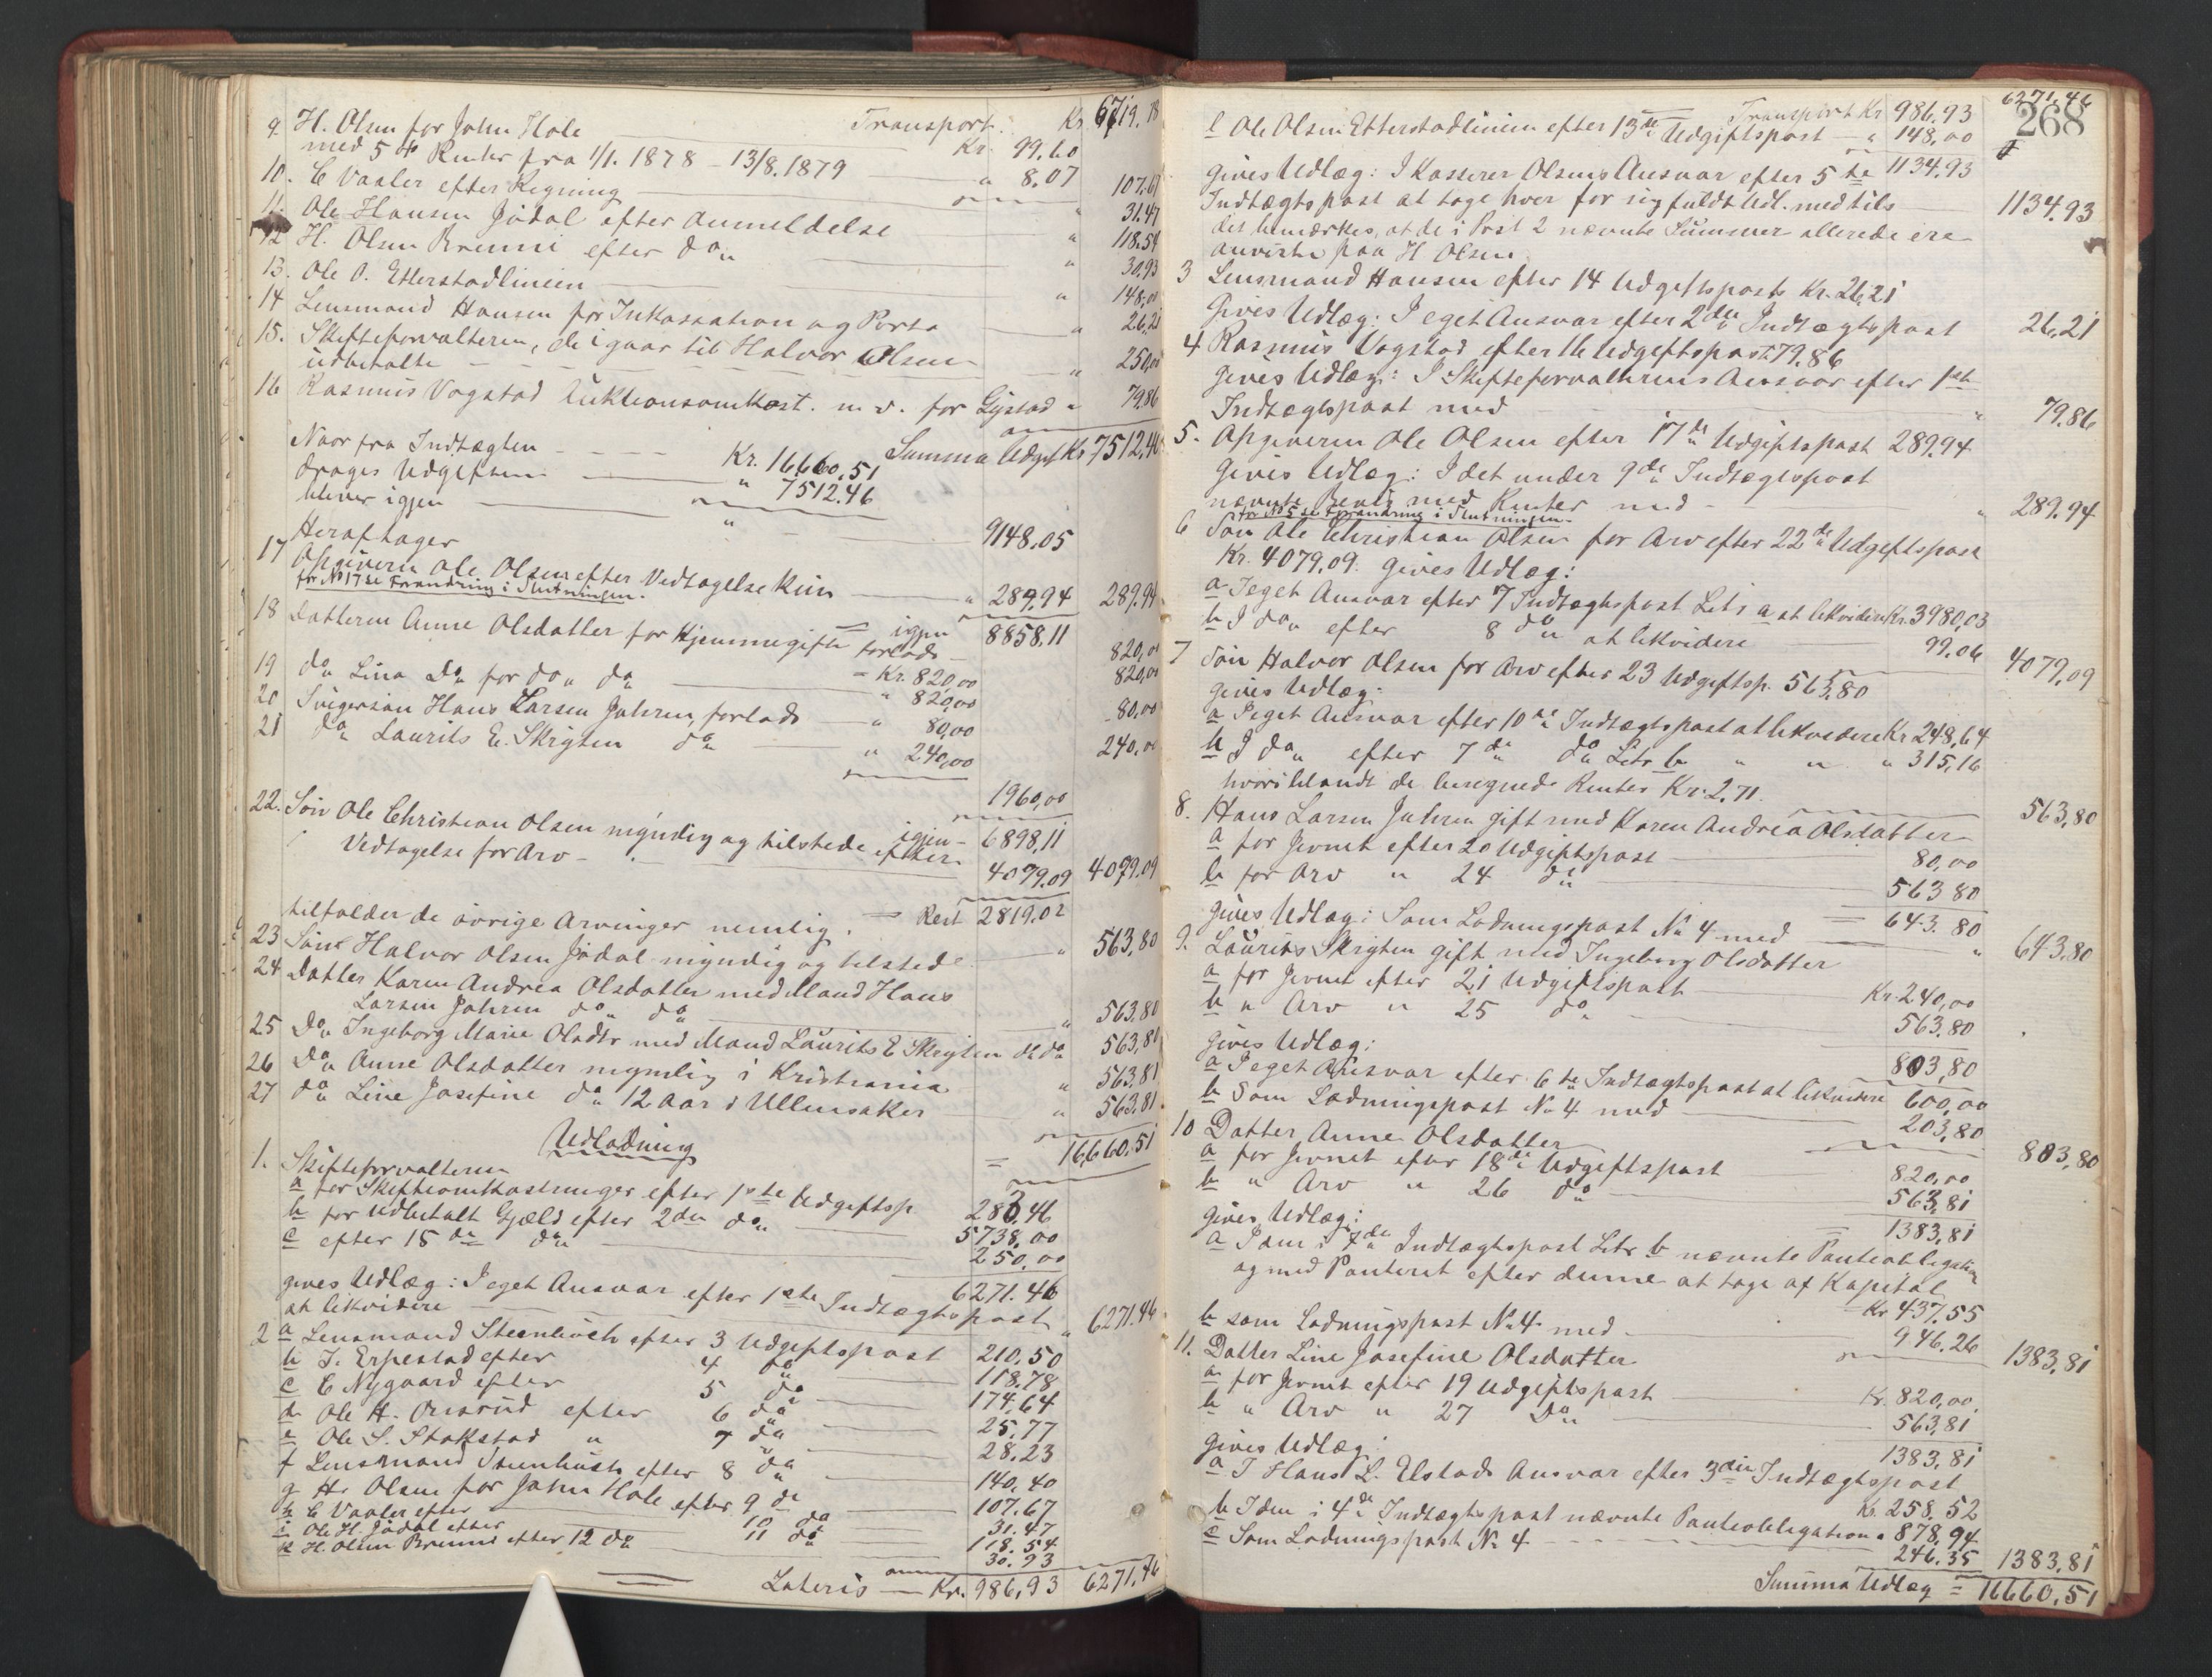 Transport. Kr 6719.18
9. H. Olsen for John Hole Kr. 99.60
med 5 % Renter fra 1/1. 1878 - 13/8. 1879 " 8.07 107.67
10. C Vaaler efter Regning " 31.47
11. Ole Hansen Jødal efter Anmeldelse " 118.54
12 H. Olsen Brenni efter do " 30.93
13. Ole O. Etterstadlinien " 148,00
14 Lensmand Hansen for Inkassation og Porto " 26.21
15. Skifteforvalteren, de igaar til Halvor Olsen
udbetalte " 250,00
16 Rasmus Vogstad Auktionsomkost. m. v. for Gystad " 79.86
Summa Udgift Kr 7512,46
Naar fra Indtægten Kr. 16660,51
drages Udgiften " 7512.46
bliver igjen " 9148.05
Heraf tager
17 Opgiveren Ole Olsen efter Vedtagelse kun " 289,94 289.94
for No 17 se Forandring i Slutningen.
= igjen 8858.11
18 Datteren Anne Olsdatter for Hjemmegifte forlods = Kr. 820,00 820,00
19 do Lina Do for do do " 820,00 820,00
20 Svigersøn Hans Larsen Jahren, forlods " 80,00 80,00
21 do Laurits E. Skrigten do " 240,00 240,00
1960,00
igjen 6898,11
22. Søn Ole Christian Olsen myndig og tilstede efter
Vedtagelse for Arv 4079.09 4079.09
= Rest 2819.02
tilfalder de øvrige Arvinger nemlig.
23 Søn Halvor Olsen Jødal myndig og tilstede " 563,80
24 Datter Karen Andrea Olsdatter med Mand Hans
Larsen Jahren do do " 563,80
25 Do Ingeborg Marie Olsdtr med Mand Laurits E Skrigten do do 563,80
26 Do Anne Olsdatter myndig i Kristiania " 563.81
27 do Line Josefine do 12 Aar i Ullensaker " 563,81
= 16,660.51
Udlodning
1. Skifteforvalteren
a for Skifteomkostninger efter 1ste Udgiftsp 283,46
b for udbetalt Gjæld efter 2den do 5738,00
c efter 15de do 250,00
6271.46
gives Udlæg: I eget Ansvar efter 1ste Indtægtspost
at likvidere " 6271.46
2 a Lensmand Steenbuch efter 3 Udgiftspost 210,50
b J. Erpestad efter 4 do 118.78
c E Nygaard efter 5 do 174,64
d Ole H. Onsrud efter 6 do 25,77
e Ole S. Stokstad " 7 do 28.23
f Lensmand Steenbuch efter 8 do 140,40
g H. Olsen for John Hole efter 9 do 107.67
h C Vaaler efter 10 do 31.47
i Ole H. Jødal efter 11 do 118.54
k H. Olsen Brenni efter 12 do 30.93
Lateris Kr. 986,93 6271,46
268
Transport Kr 986.93 6271.46
l Ole Olsen Etterstadlinien efter 13de Udgiftspost " 148,00
1134.93
gives Udlæg: I Kasserer Olsens Ansvar efter 5te
Indtægtspost at tage hver for sig fuldt Udl. med tils 1134.93
det bemærkes, at de i Post 2 nævnte Summer allerede ere
anviste paa H Olsen
3 Lensmand Hansen efter 14 Udgiftspost Kr. 26,21
gives Udlæg: I eget Ansvar efter 2den Indtægtspost 26,21
4 Rasmus Vogstad efter 16 Udgiftspost 79.86
gives Udlæg: I Skifteforvalterens Ansvar efter 1ste
Indtægtspost med " 79.86
5. Opgiveren Ole Olsen efter 17de Udgiftspost 289.94
gives Udlæg: I det under 9de Indtægtspost
nævnte Bevis med Renter med " 289.94
for No 5 se Forandring i Slutningen.
6 Søn Ole Christian Olsen for Arv efter 22de Udgiftspost
Kr. 4079,09. gives Udlæg:
a I eget Ansvar efter 7 Indtægtspost Litr a at likvidere Kr. 3980,03
b I do efter 8 do at likvidere 99.06 4079,09
7 Søn Halvor Olsen for Arv efter 23 Udgiftsp. 563,80
gives Udlæg:
a I eget Ansvar efter 10de Indtægtspost at likvidere Kr 248,64
b I do efter 7de do Litr b " " " 315,16
hvoriblandt de beregnede Renter Kr. 2.71 563,80
8. Hans Larsen Jahren gift med Karen Andrea Olsdatter
a for Jevnet efter 20 Udgiftspost 80,00
b for Arv " 24 do 563 80
643.80
gives Udlæg: Som Lodningspost No 4 med " 643,80
9. Laurits Skrigten gift med Ingeborg Olsdatter
a for Jevnet efter 21 Udgiftspost Kr. 240,00
b " Arv " 25 do 563.80
803,80
gives Udlæg:
a I eget Ansvar efter 6te Indtægtspost at likvidere 600,00
b Som Lodningspost No 4 med 203,80 803,80
10 Datter Anne Olsdatter
a for Jevnet efter 18de Udgiftspost 820,00
b " Arv " 26 do 563,81
1383,81
gives Udlæg:
a I den i 7de Indtægtspost Litr b nævnte Panteobligation
og med Panteret efter denne at tage af Kapital
Kr 437.55
b som Lodningspost No 4 med 946.26 1383,81
11. Datter Line Josefine Olsdatter
a for Jevnet efter 19 Udgiftspost Kr. 820,00.
b " Arv " 27 Do 563,81
1383,81
gives Udlæg:
a I Hans L. Elstads Ansvar efter 3die Indtægtspost
Kr. 258,52
b I den i 4de Indtægtspost nævnte Panteobligation " 878,94
c Som Lodningspost No 4 246.35 1383,81
Summa Udlæg = 16660.51